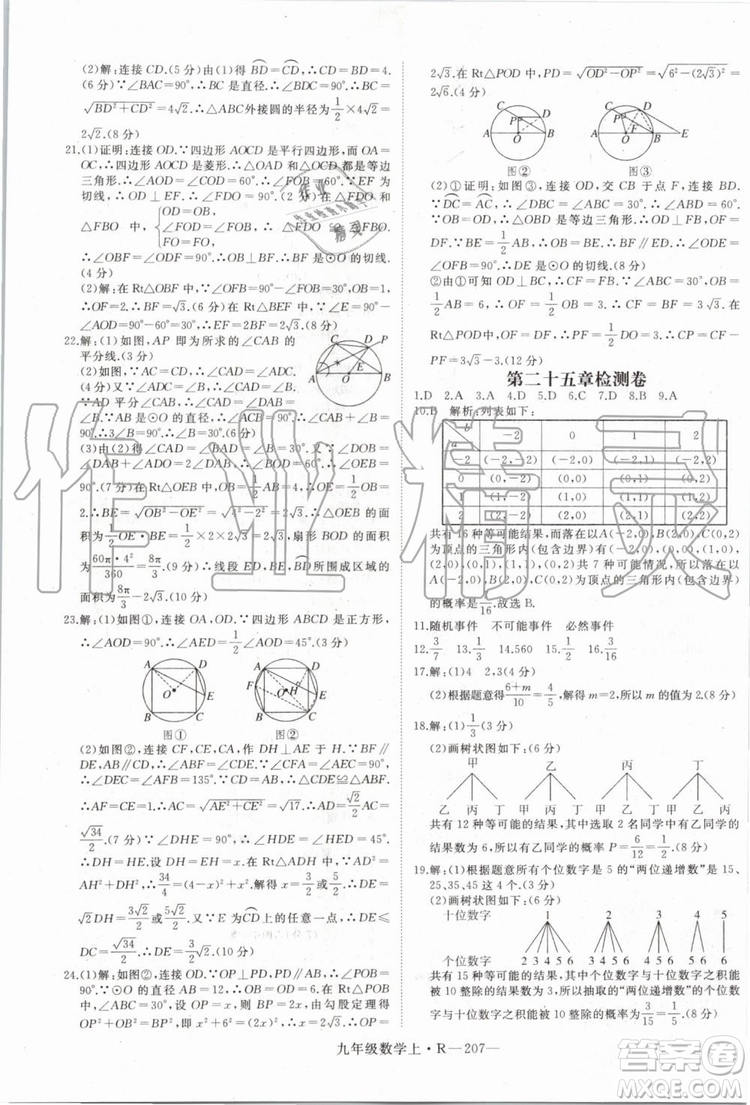 (2)解:连接 CD.(5分)由(1)得BD=CD,∴CD=BD=4.
(6分)∵∠BAC=90°,∴BC是直径,∴∠BDC=90°,∴BC=
√(BD²+CD²)=4√2.∴△ABC外接圆的半径为1/2×4√2=
2√2.(8分)
21.(1)证明:连接 OD.∵四边形 AOCD 是平行四边形,而 OA=
OC,∴四边形 AOCD 是菱形.∴△OAD 和△OCD 都是等边三
角形.∴∠AOD=∠COD=60°,∴∠FOB=60°.∵EF 为
切线,∴OD⊥EF,∴∠FDO=90°.(2分)在△FDO 和
△FBO 中,{OD=OB, ∠FOD=∠FOB, FO=FO
∴△FDO≌△FBO,
∴∠OBF=∠ODF=90°,∴OB⊥BF,∴BF 是⊙O的切线.
(4分)
(2)解:在 Rt△OBF 中,∵∠FOB=60°,∴∠OFB=30°.∵OB=
2,∴OF=4,∴BF=2√3.(6分)在 Rt△BEF 中,∵∠E=
90°-∠AOD=90°-60°=30°,∴EF=2BF=4√3.(8分)
22.解:(1)如图,AP 即为所求的∠CAB 的
平分线.(3分)
(2)如图,∵AC=CD,∴∠CAD=∠ADC.
又∵∠ADC=∠B,∴∠CAD=∠B.(4分)
∵AD 平分∠CAB,∴∠CAD=∠DAB=
∠B.∵AB 是⊙O 的直径,∴∠ACB=90°,∴∠CAB+∠B=
90°,∴3∠B=90°,∴∠B=30°.(6分)
(3)由(2)得∠CAD=∠BAD,∠DAB=30°.又∵∠DOB=
2∠DAB,∴∠BOD=60°,∴∠OEB=90°.在 Rt△OEB 中,OB=
1/2AB=4,∴OE=1/2OB=
2,∴BE=√(OB²-OE²)=√(4²-2²)=2√3.∴△OEB 的面
积为1/2OE·BE=1/2×2×2√3=2√3,扇形 BOD 的面积为
60π·4²/360=8π/3,(8分)∴线段 ED,BE,BD所围成区域的面
积为8π/3-2√3.(10分)
23.解:(1)如图①,连接 OA,OD.∵四边形 ABCD 是正方形,
∴∠AOD=90°,∴∠AED=1/2∠AOD=45°.(3分)
图①
图②
(2)如图②,连接 CF,CE,CA,作 DH⊥AE 于 H.∵BF∥DE,
AB∥CD,∴∠ABF=∠CDE.∵∠CFA=∠AEC=90°,
∴∠DEC=∠AFB=135°.∵CD=AB,∴△CDE≌△ABF,
∴AF=CE=1,∴AC=√(AE²+CE²)=√17.∴AD=√2/2AC=
√34/2.(7分)∵∠DHE=90°,∴∠HDE=∠HED=45°,
∴DH=HE.设 DH=EH=x,在 Rt△ADH 中,∵AD²=AH²+
DH²,∴34/4=(4-x)²+x²,解得 x=3/2或5/2,∴DE=√2DH=
3√2/2或5√2/2.又∵E 为CD上的任意一点,∴DE≤
DC=√34/2.(10分)
24.(1)解:如图②,连接 OD.∵OP⊥PD,PD∥AB,∴∠POB=
90°.∵⊙O 的直径 AB=12,∴OB=OD=6.(2分)在
Rt△POB 中,∠ABC=30°,∴PB=2OP.由勾股定理得
OP²+6²=(2OP)²,∴OP=
2√3.在 Rt△POD 中,PD=√(OD²-OP²)=√(6²-(2√3)²)=
2√6.(4分)
图②
图③
(2)①证明:如图③,连接 OD,交 CB 于点 F,连接 BD.
∵DC=AC,∴∠DBC=∠ABC=30°,∴∠ABD=60°.
∵OB=OD,∴△OBD 是等边三角形,∴OD⊥FB.∵BE=
1/2AB,∴OB=BE,∴BF∥ED,∴∠ODE=
∠OFB=90°.∴DE 是⊙O 的切线.(8分)
②由①知 OD⊥BC,∴CF=FB.在 Rt△OFB 中,OB=
1/2AB=6,∴OF=1/2OB=3,∴CF=FB=3√3.在
Rt△POD 中,OF=DF=3,∴PF=OF=3,∴CP=CF-
PF=3√3-3.(12分)
第二十五章检测卷
1.D 2.A 3.A 4.D 5.D 6.C 7.D 8.D 9.A
10.B 解析:列表如下:
a b -2 0 1 2
-2 (-2,-2) (-2,0) (-2,1) (-2,2)
0 (0,-2) (0,0) (0,1) (0,2)
1 (1,-2) (1,0) (1,1) (1,2)
2 (2,-2) (2,0) (2,1) (2,2)
共有 16 种等可能的结果,而以A(-2,0),B(2,0),C(0,2)
为顶点的三角形内(包含边界)有(-2,0),(0,0),(1,0),
(2,0),(0,1),(1,1),(0,2)共 7 种可能情况,所以落在以
A(-2,0),B(2,0),C(0,2)为顶点的三角形内(包含边界)
的概率是7/16.故选 B.
11.随机事件 不可能事件 必然事件
12.3/7 13.1/6 14.560 15.1/2 16.4/9
17.解:(1)4 2,3(4分)
(2)根据题意得(6+m)/10=4/5,解得 m=2,所以 m 的值为 2.(8分)
18.解:(1)1/3(3分)
(2)画树状图如下:(6分)
甲 乙 丙 丁
乙 丙 丁 甲 丙 丁 甲 乙 丁 甲 乙 丙
共有 12 种等可能的结果,其中选取 2 名同学中有乙同学的
结果有 6 种,所以恰好选中乙同学的概率 P=6/12=1/2.(8分)
19.解:(1)根据题意所有个位数字是 5 的“两位递增数”是 15,
25,35,45 这 4 个.(3分)
(2)画树状图如下:(6分)
十位数字 1 2 3 4 5
个位数字 2 3 4 5 6 3 4 5 6 4 5 6 5 6 6
共有 15 种等可能的结果,其中个位数字与十位数字之积能
被 10 整除的结果有 3 种,所以抽取的“两位递增数”的个位
数字与十位数字之积能被 10 整除的概率为3/15=1/5.(8分)
九年级数学上·R—207—
作业精灵
答案圈
MXQE.COM